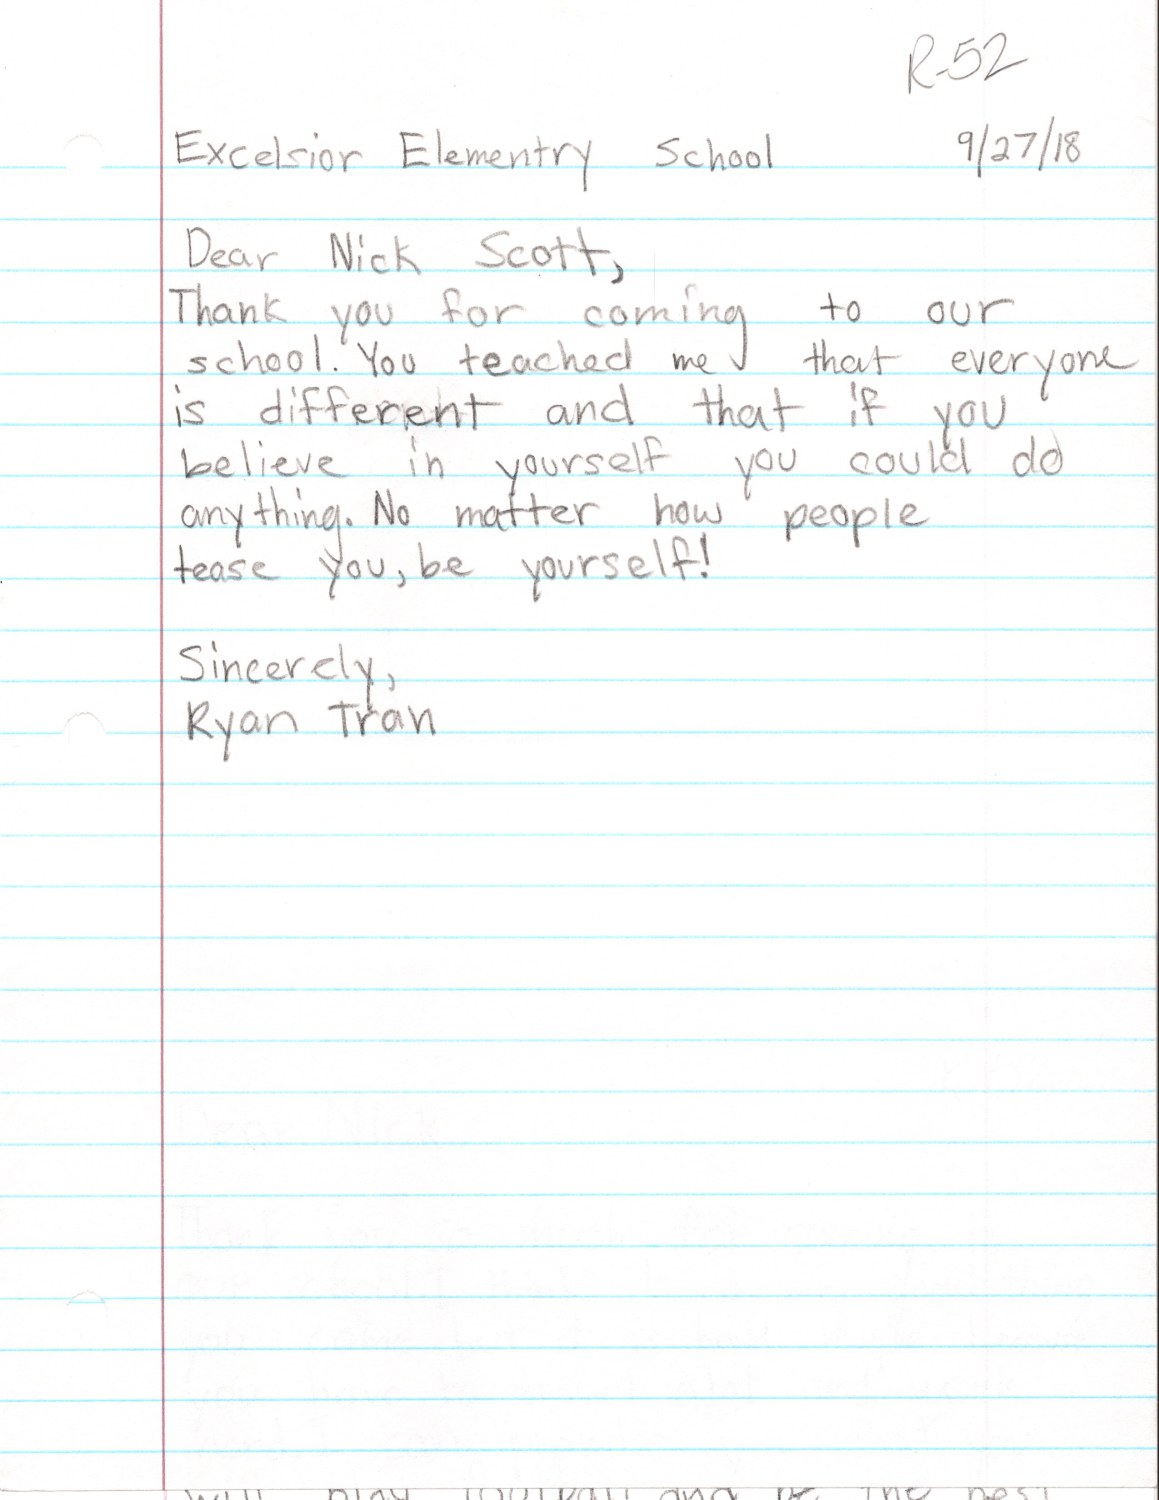 R-52
Excelsior Elementry School 9/27/18
Dear Nick Scott,
Thank you for coming to our
school. You teached me that everyone
is different and that if you
believe in yourself you could do
anything. No matter how people
tease you, be yourself!
Sincerely,
Ryan Tran
will play football and be the best